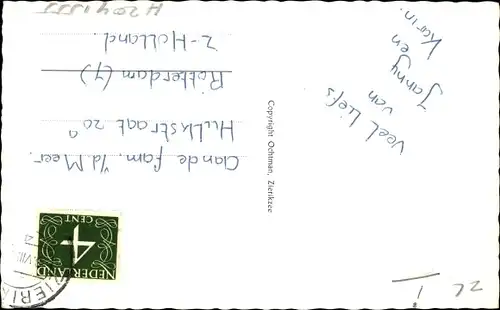 Veel Liefs
van
Janny en
Karin.
Aan de fam. v/d Meer.
Hulkstraat 20ª
Rotterdam (7)
Z-Holland.
Copyright Ochtman, Zierikzee
NEDERLAND
4
CENT
ZIERIK
VIII